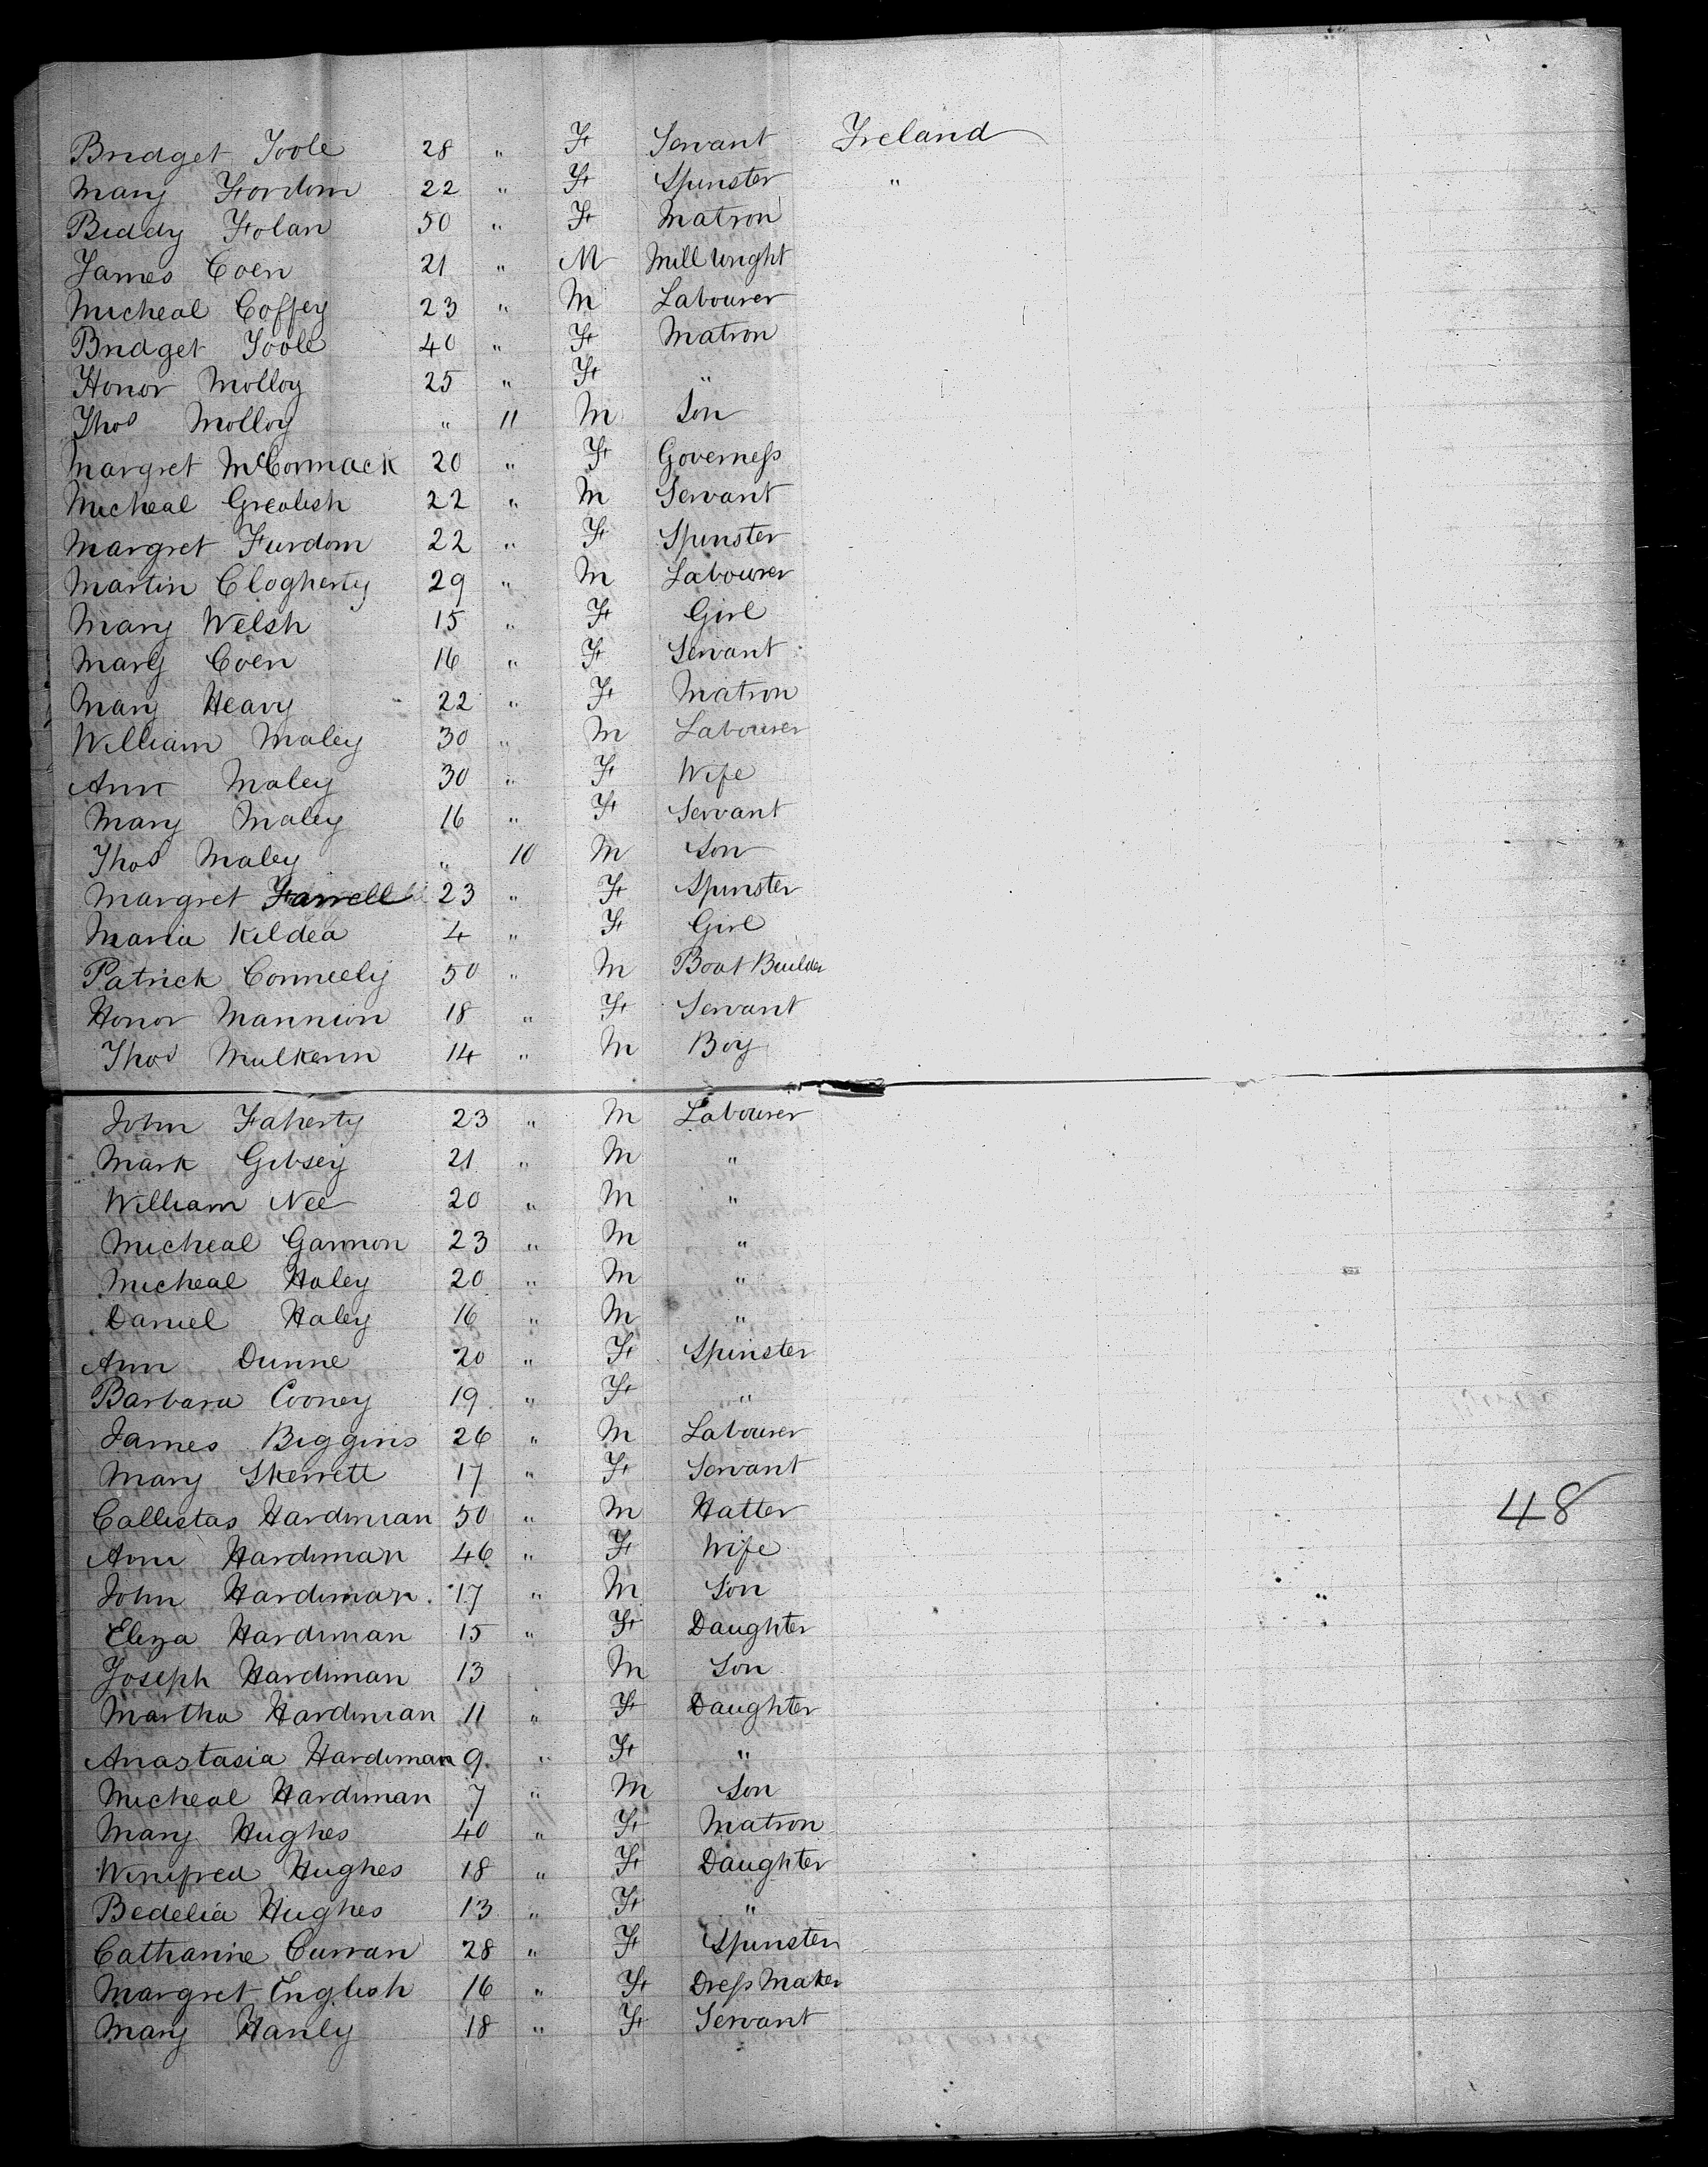 Bridget Toole 28 " F Servant Ireland
Mary Fordom 22 " F Spinster "
Biddy Folan 50 " F Matron
James Coen 21 " M Mill wright
Micheal Coffey 23 " M Labourer
Bridget Toole 40 " F Matron
Honor Molloy 25 " F "
Thos Molloy " 11 M Son
Margret McCormack 20 " F Governess
Micheal Grealish 22 " M Servant
Margret Furdom 22 " F Spinster
Martin Clogherty 29 " M Labourer
Mary Welsh 15 " F Girl
Mary Coen 16 " F Servant
Mary Heavy 22 " F Matron
William Maley 30 " M Labourer
Ann Maley 30 " F Wife
Mary Maley 16 " F Servant
Thos Maley " 10 M Son
Margret Farrell 23 " F Spinster
Maria Kildea 4 " F Girl
Patrick Conneely 50 " M Boat Builder
Honor Mannion 18 " F Servant
Thos Mulkerin 14 " M Boy
John Faherty 23 " M Labourer
Mark Gibsey 21 " M "
William Nee 20 " M "
Micheal Gannon 23 " M "
Micheal Haley 20 " M "
Daniel Haley 16 " M "
Ann Dunne 20 " F Spinster
Barbara Cooney 19 " F "
James Biggins 26 " M Labourer
Mary Skerrett 17 " F Servant
Callistas Hardiman 50 " M Hatter 48
Ann Hardiman 46 " F Wife
John Hardiman 17 " M Son
Eliza Hardiman 15 " F Daughter
Joseph Hardiman 13 M Son
Martha Hardiman 11 " F Daughter
Anastasia Hardiman 9 " F "
Micheal Hardiman 7 " M Son
Mary Hughes 40 " F Matron
Winifred Hughes 18 " F Daughter
Bedelia Hughes 13 " F "
Catharine Curran 28 " F Spinster
Margret English 16 " F Dress Maker
Mary Hanly 18 " F Servant